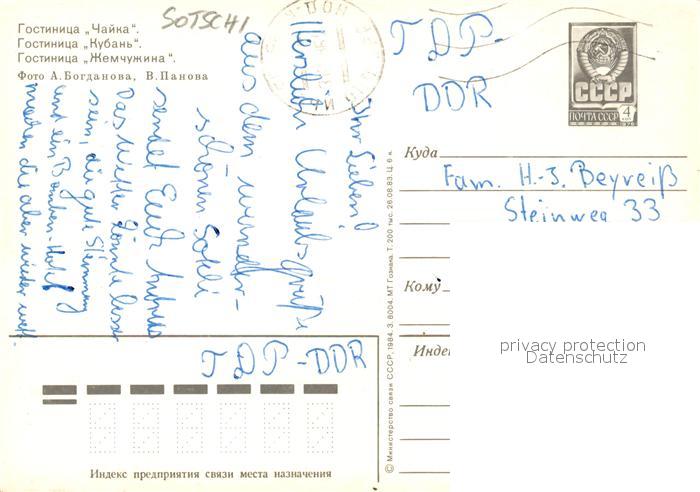 SOTSCHI
Гостиница „Чайка“.
Гостиница „Кубань“.
Гостиница „Жемчужина“.
Фото А. Богданова, В. Панова
Ihr Lieben!
Herzliche Urlaubsgrüße
aus dem wunder-
schönen Sotschi
sendet Euch
Das Wetter könnte besser
sein, die gute Stimmung
und ein Bomben-Hotel
machen dies aber wieder wett.
ГДР-
DDR
СССР
ПОЧТА СССР 4
1976
Куда
Fam. H.-J. Beyreiß
Steinweg 33
Кому
Индек
privacy protection
Datenschutz
ГДР-DDR
Индекс предприятия связи места назначения
© Министерство связи СССР, 1984. З. 8004. МТ Гознака. Т. 200 тыс. 26.08.83. Ц. 6 к.